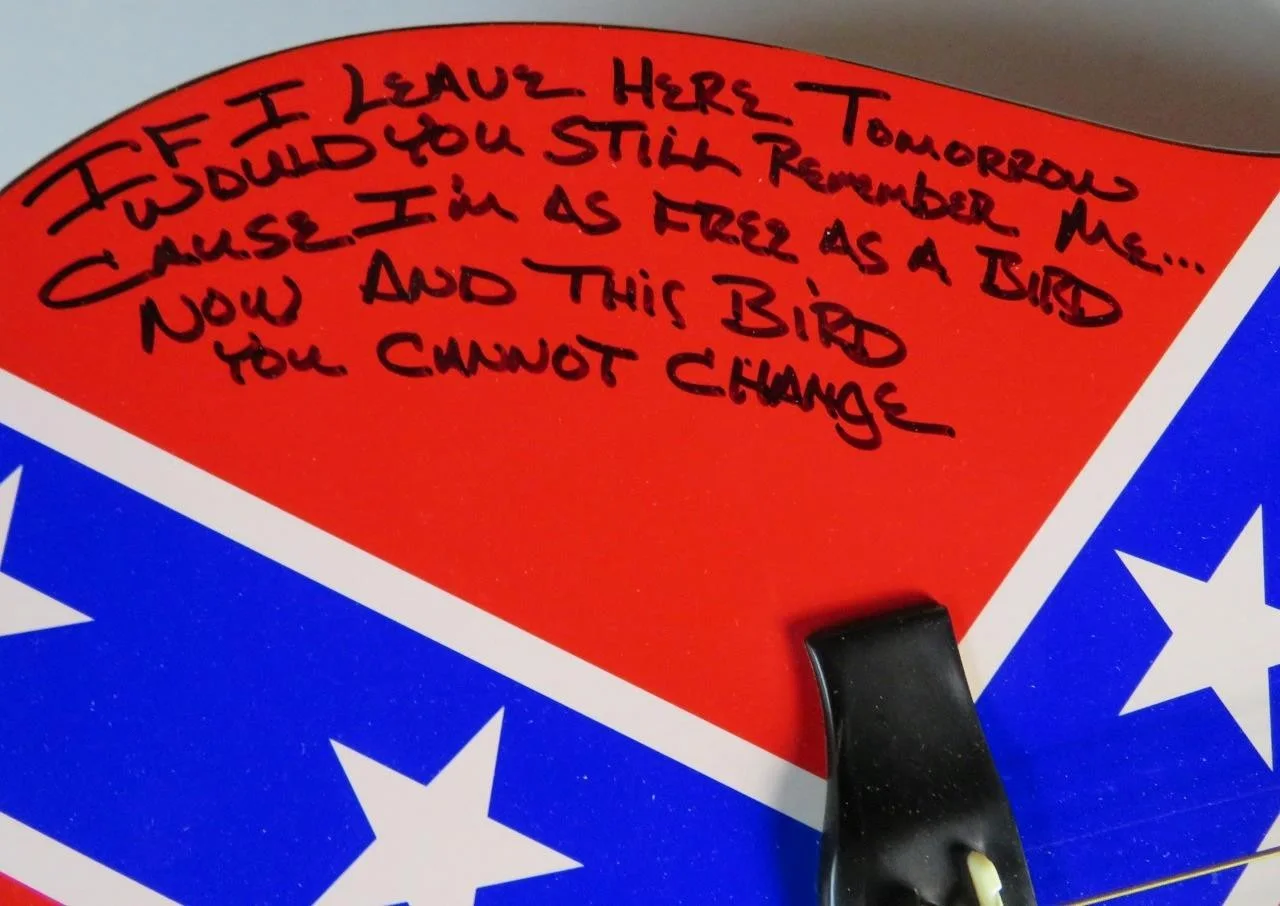 IF I LEAVE HERE TOMORROW
WOULD YOU STILL REMEMBER ME...
CAUSE I'M AS FREE AS A BIRD
NOW AND THIS BIRD
YOU CANNOT CHANGE